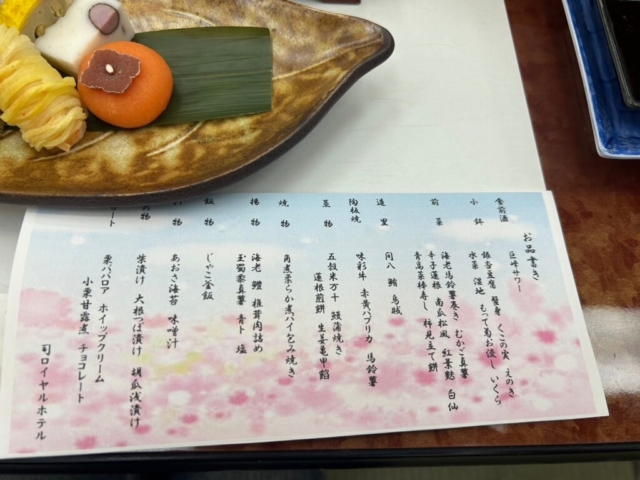 お品書き
食前酒 巨峰サワー
小鉢 銀杏豆腐 蟹身 くこの実 えのき
水菜 湿地 もって菊お浸し いくら
前菜 海老馬鈴薯巻き むかご真薯
辛子蓮根 南瓜松風 紅葉麩 白仙
青高菜棒寿し 柿見立て餅
造里 間八 鮪 烏賊
陶板焼 味彩牛 赤黄パプリカ 馬鈴薯
蒸物 五穀米万十 鰻蒲焼き
蓮根煎餅 生姜亀甲餡
焼物 角煮柔らか煮パイ包み焼き
揚物 海老 鱧 椎茸肉詰め
玉蜀黍真薯 青ト 塩
飯物 じゃこ釜飯
物 あおさ海苔 味噌汁
の物 柴漬け 大根つぼ漬け 胡瓜浅漬け
ート 栗ババロア ホイップクリーム
小栗甘露煮 チョコレート
司ロイヤルホテル